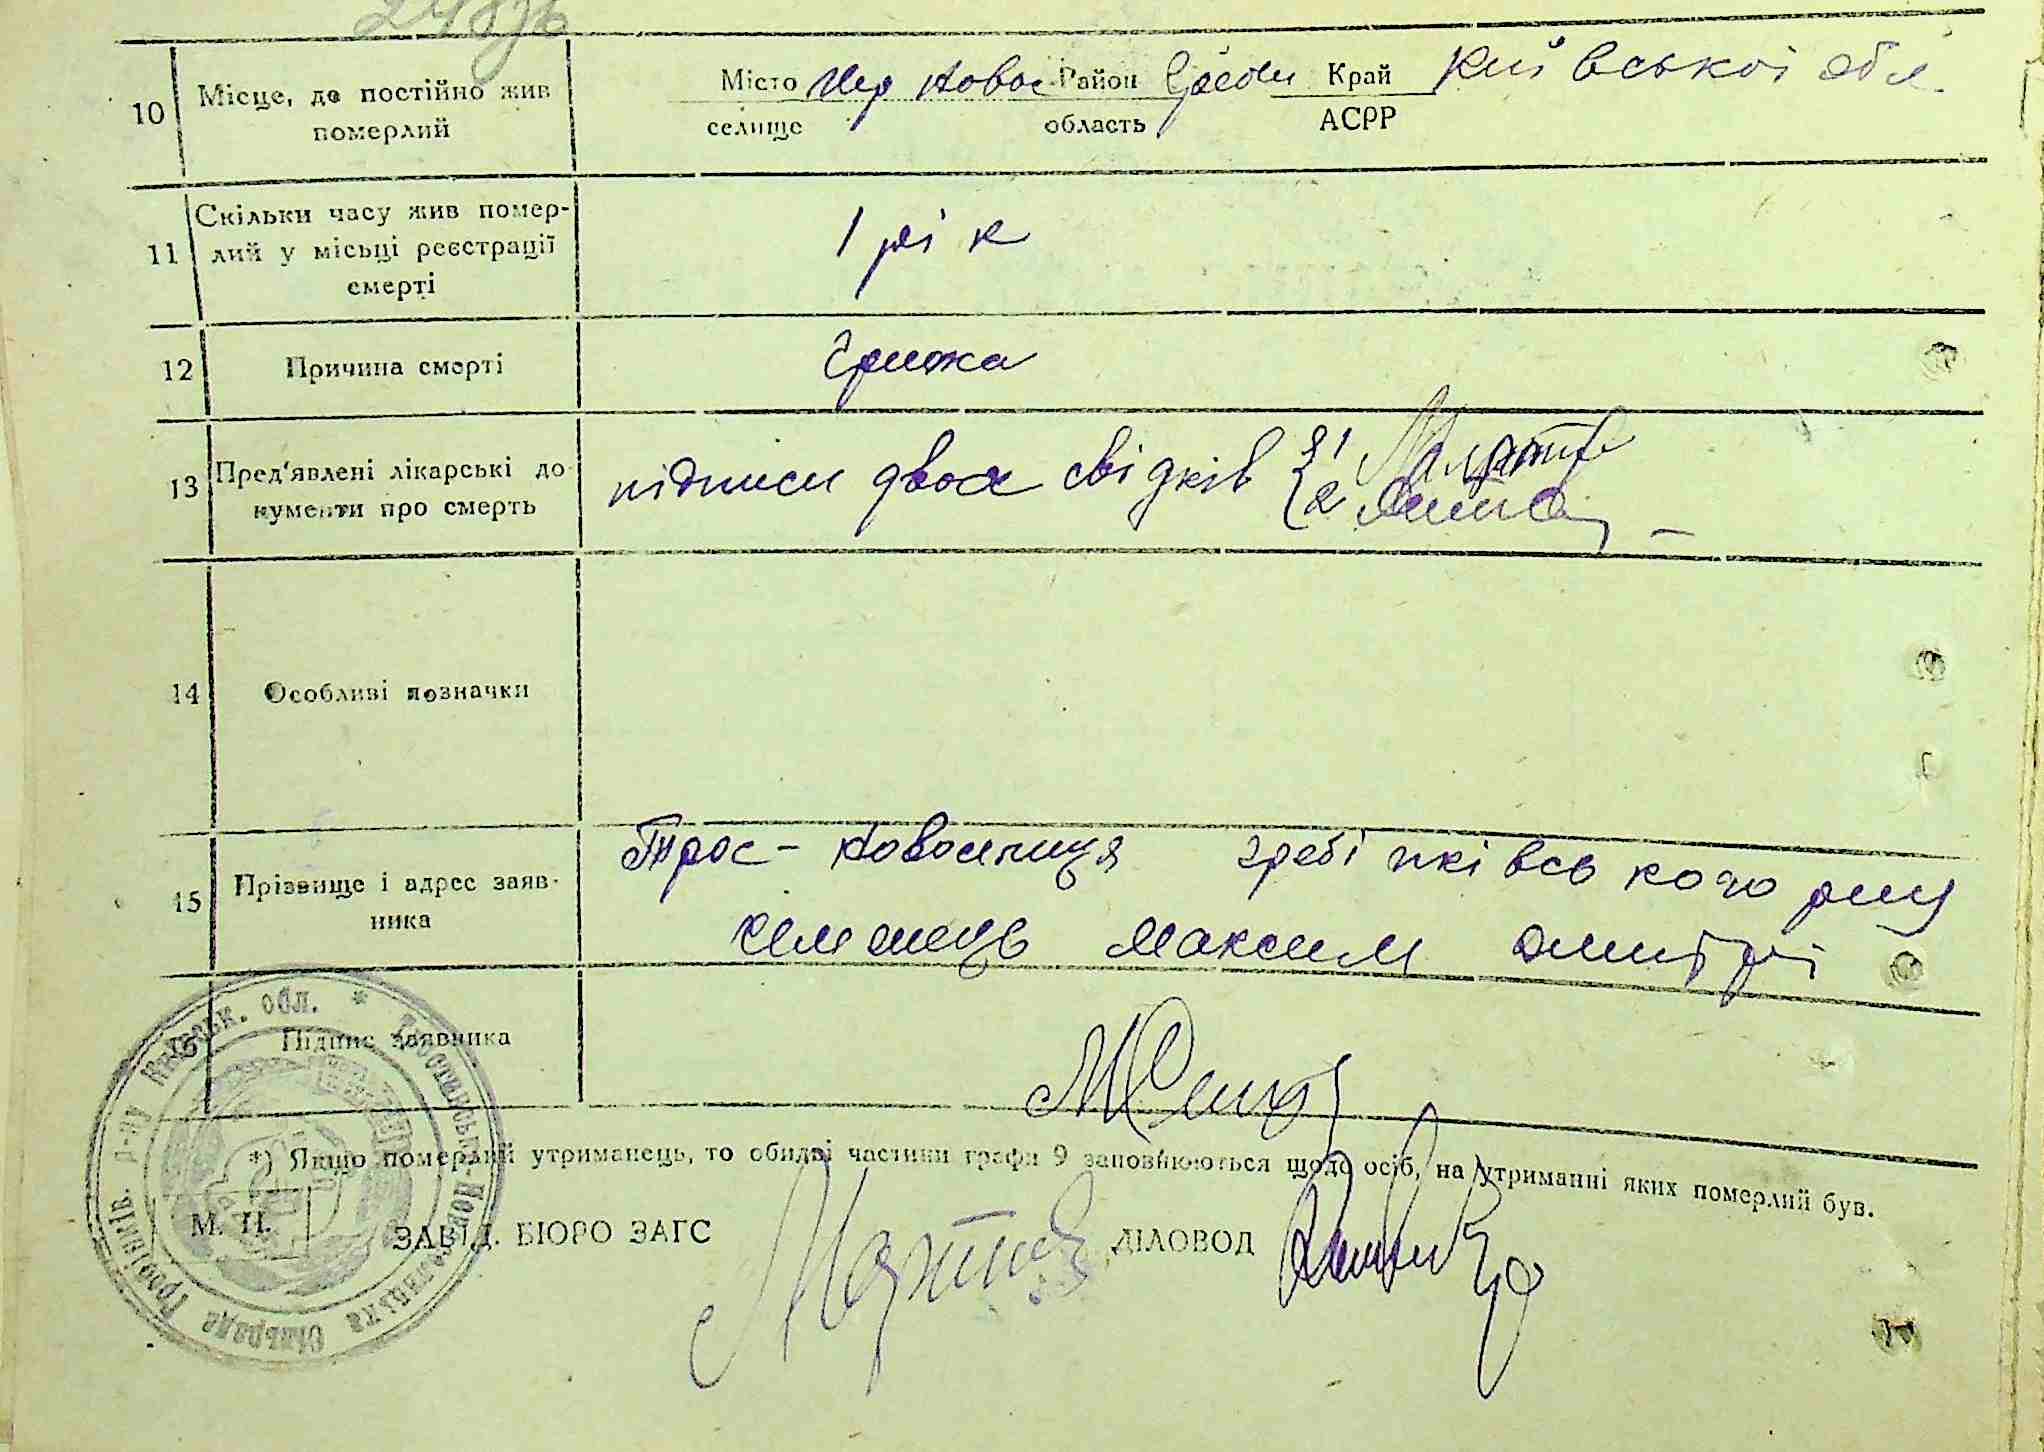 10 Місце, де постійно жив померлий
Місто Район Край Київської обл
селище область АСРР
11 Скільки часу жив помер-
лий у місьці реєстрації
смерті
1 рік
12 Причина смерті
грижа
13 Пред'явлені лікарські до
кументи про смерть
підписи двох свідків 1
2
14 Особливі позначки
15 Прізвище і адрес заяв-
ника
Трос-Новоселиця гребінківського рну
Максим Дмитрі
16 Підпис заявника
*) Якщо померлий утриманець, то обидві частини графи 9 заповнюються щодо осіб, на утриманні яких померлий був.
М. П. ЗАВІД. БЮРО ЗАГС ДІЛОВОД